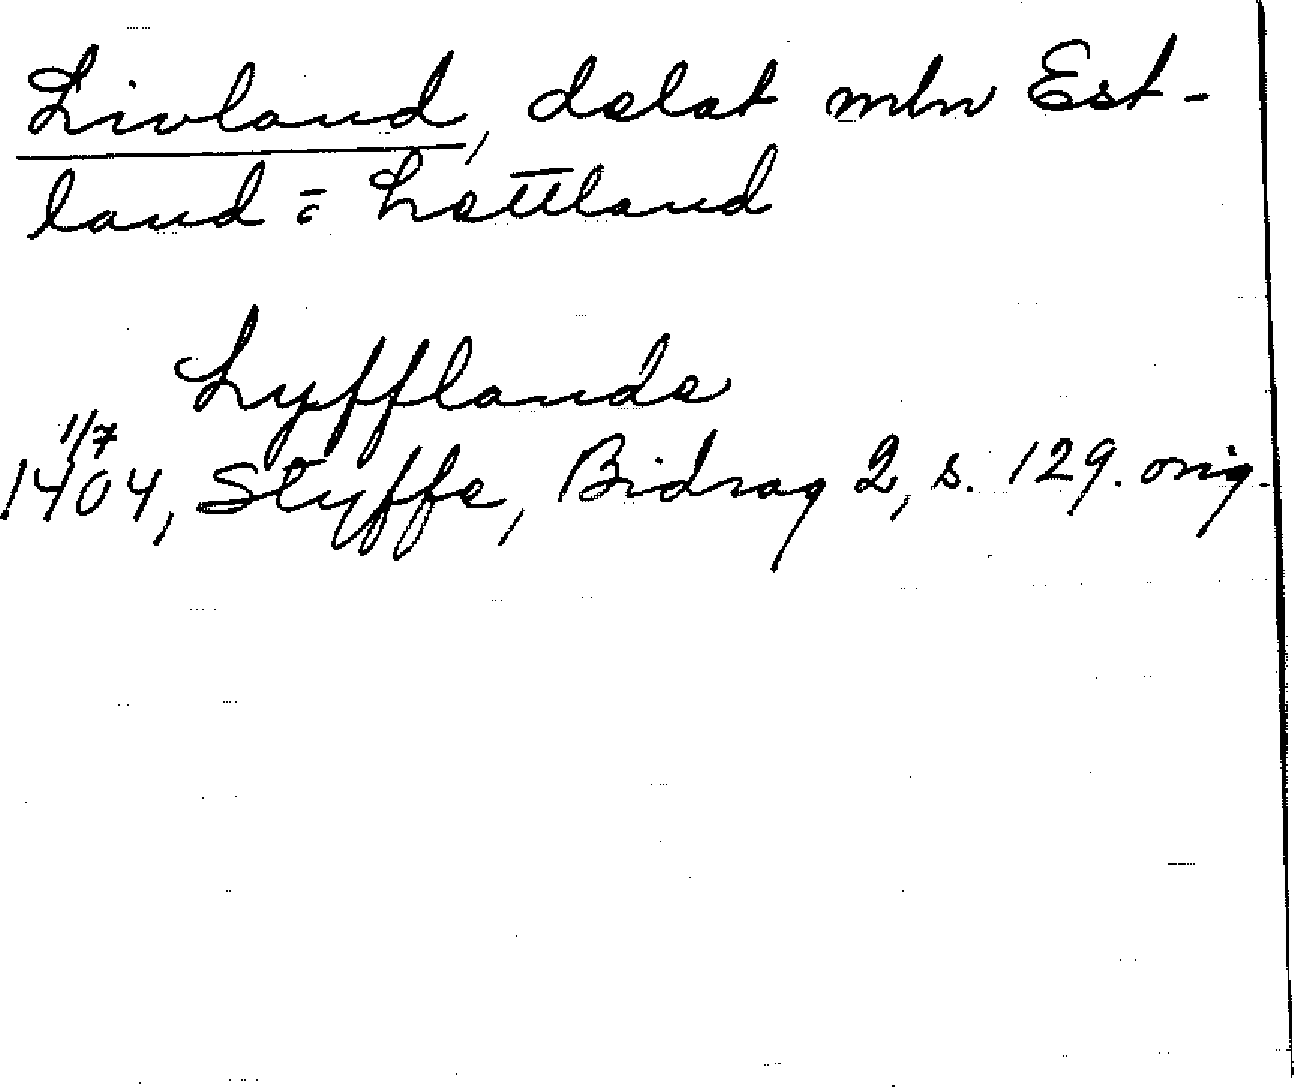 Livland, delat mln Est-
land o Lettland
Lyfflande
1/7
1404, Styffe, Bidrag 2, s. 129. orig.